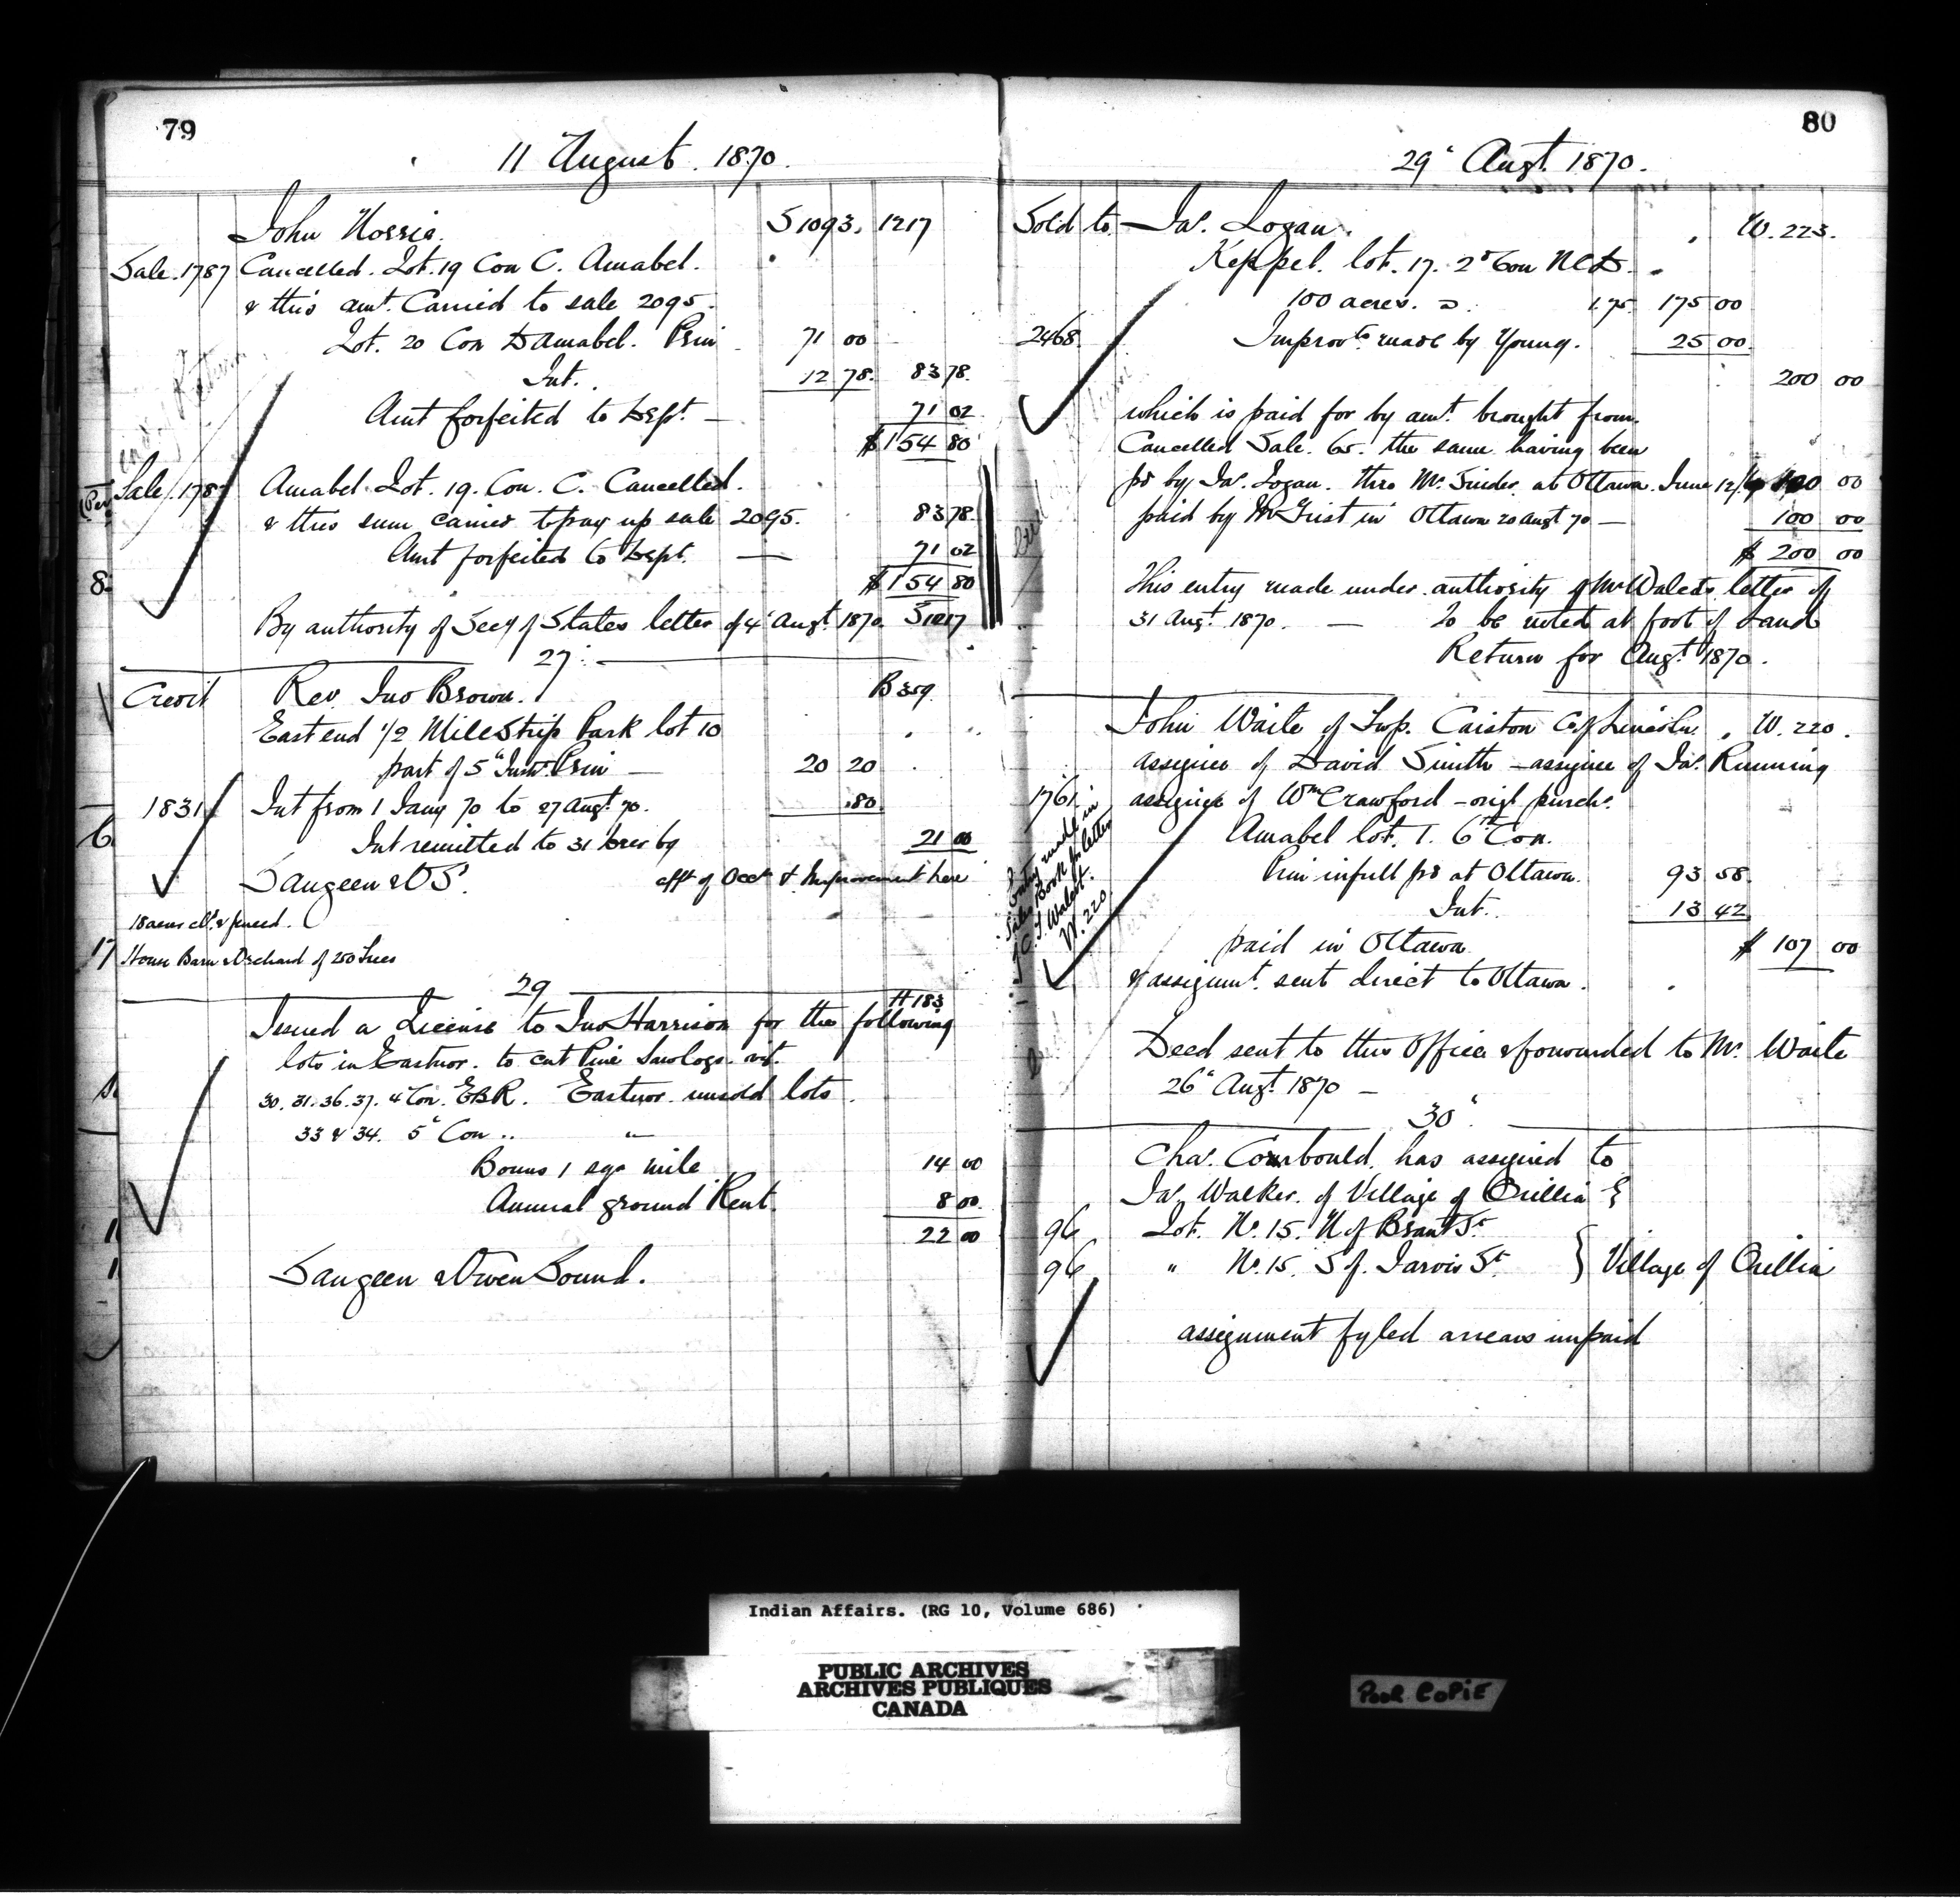 79
11 August 1870.
John Norris. S 1093. 1217
Sale 1787 Cancelled. Lot. 19 Con C. Amabel.
& this amt. Carried to sale 2095.
Lot. 20 Con D Amabel. Prin 71 00
Int. 12 78. 83 78.
Amt forfeited to Dept. — 71 02
$154 80
Sale 1787 Amabel Lot. 19. Con. C. Cancelled.
& this sum carried to pay up sale 2095. 83 78.
Amt forfeited to Dept. — 71 02
$154 80
8
By authority of Secy of States letter of 4" Augt. 1870. S 1217
27.
Credit Rev. Jno Brown. B 359.
East end 1/2 Mile Strip Park lot 10
part of 5" Inst. Prin — 20 20
1831 Int from 1 Jany 70 to 27 Augt. 70. .80
Int remitted to 31 Decr by 21 00
Saugeen & O S. afft of Occt & Improvement here
18 acres cld. & fenced.
17 House Barn & Orchard of 250 Trees
29
H 183
Issued a License to Jno Harrison for the following
lots in Eastnor. to cut Pine Sawlogs. vizt.
30. 31. 36. 37. 4" Con. EBR. Eastnor. unsold lots.
33 & 34. 5" Con .. "
Bonus 1 sqr mile 14 00
Annual ground Rent. 8 00.
22 00
Saugeen & Owen Sound.
80
29" Augt. 1870.
Sold to Jas. Logan. W. 223.
Keppel. lot. 17. 2d Con NCD.
100 acres. 1.75. 175 00
2468. Improvts. made by Young. 25 00.
200 00
which is paid for by amt. brought from
Cancelled Sale. 65. the same having been
pd by Jas. Logan. thro Mr. Snider. at Ottawa. June 12/ 100 00
paid by in Ottawa 20 Augt 70 — 100 00
$ 200 00
This entry made under authority of Mr Walcots letter of
31 Augt. 1870. — To be noted at foot of Land
Return for Augt. 1870.
John Waite of Twp. Caistor Co of Lincoln. W. 220.
assignee of David Smith — assignee of Jas. Running
1761. assignee of Wm Crawford — origl. purchr.
Amabel lot. 1. 6th Con.
Entry made in
Sales Book pr letter
C. T. Walcot.
W. 220
Prin in full pd at Ottawa. 93 58.
Int. 13 42
paid in Ottawa $ 107 00
& assignmt. sent direct to Ottawa.
Deed sent to this Office & forwarded to Mr. Waite
26" Augt. 1870 —
30".
Chas. Corbould. has assigned to
Jas. Walker. of Village of Orillia
96 Lot. No. 15. N of Brant St.
96 " No. 15. S of. Jarvis St. } Village of Orillia
assignment fyled arrears unpaid
Indian Affairs. (RG 10, Volume 686)
PUBLIC ARCHIVES
ARCHIVES PUBLIQUES
CANADA
POOR COPIE